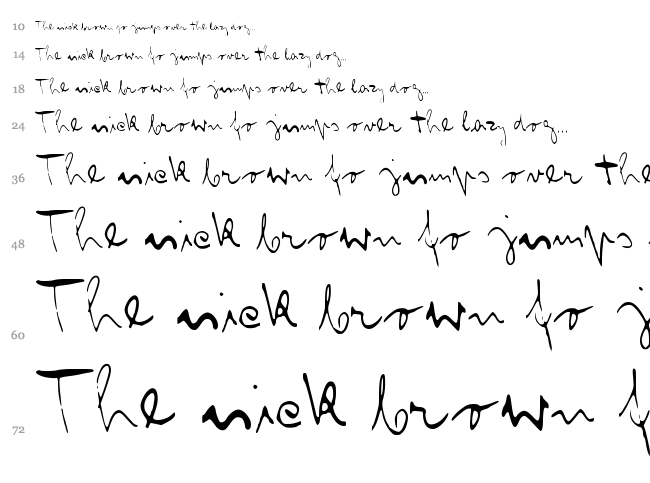 10 The uick brown fo jumps over the lazy dog...
14 The uick brown fo jumps over the lazy dog...
18 The uick brown fo jumps over the lazy dog...
24 The uick brown fo jumps over the lazy dog...
36 The uick brown fo jumps over the
48 The uick brown fo jumps
60 The uick brown fo j
72 The uick brown f